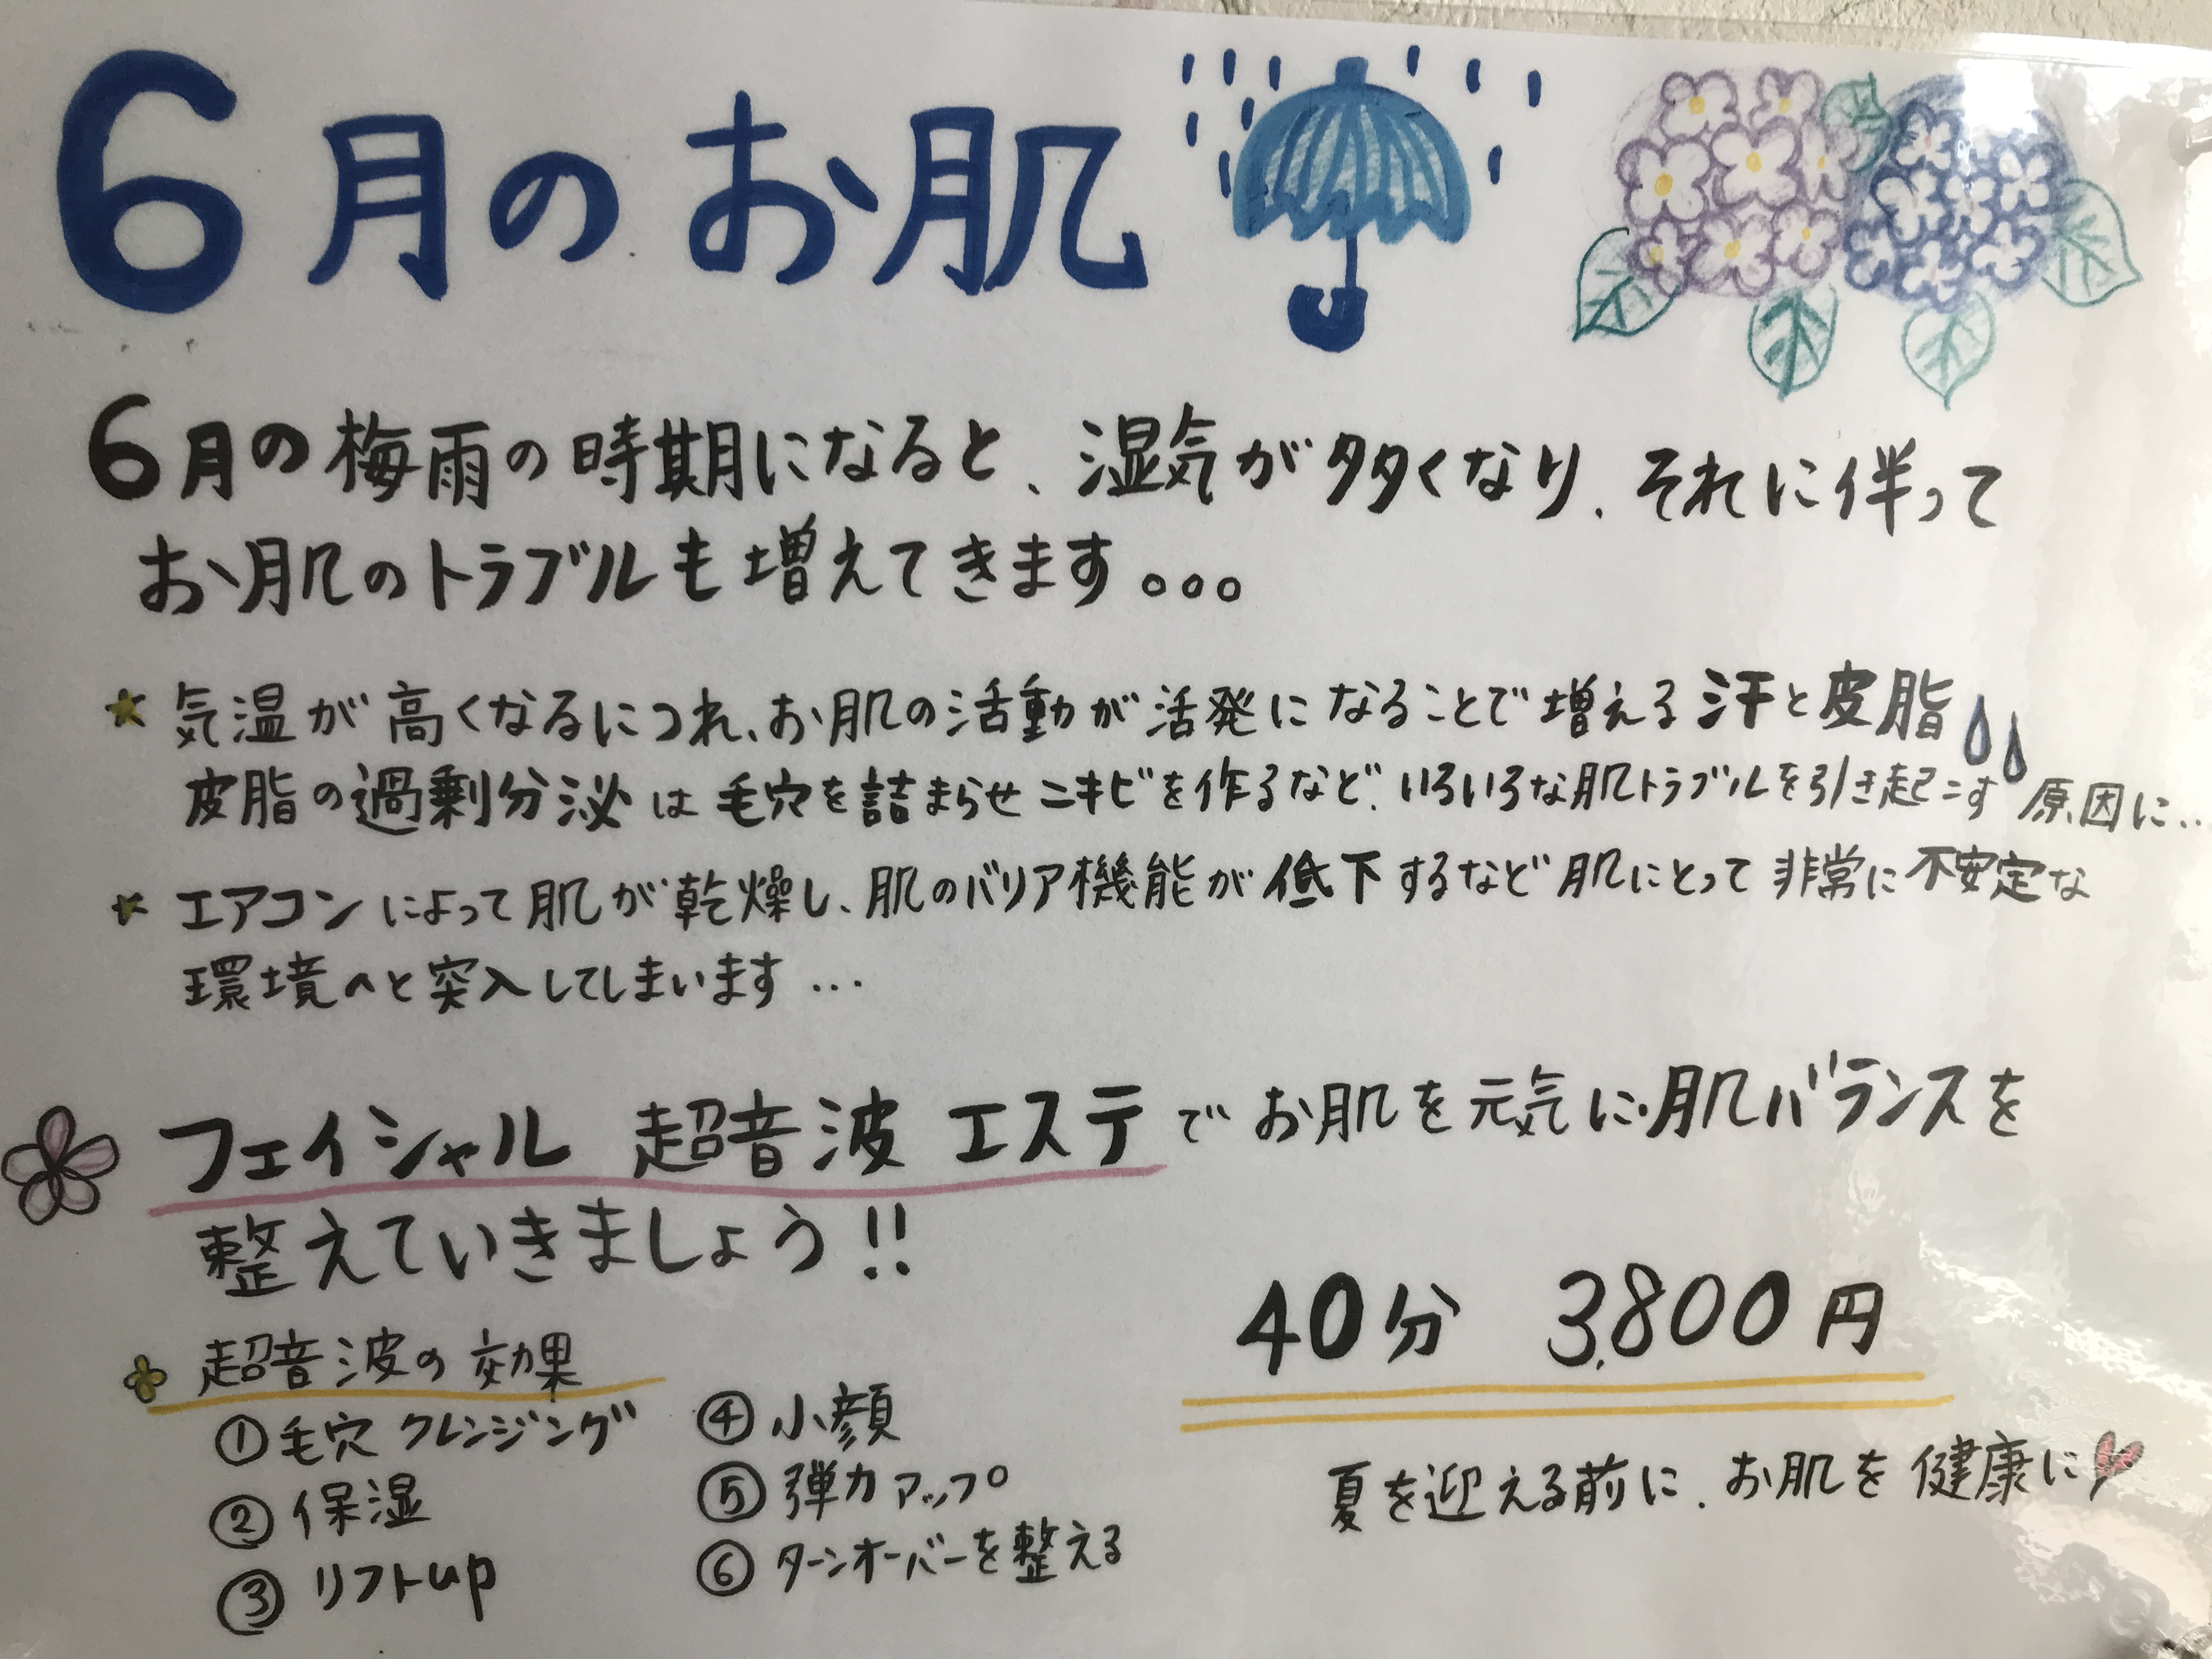 6月のお肌
6月の梅雨の時期になると、湿気が多くなり、それに伴って
お肌のトラブルも増えてきます。。。
★ 気温が高くなるにつれ、お肌の活動が活発になることで増える汗と皮脂
皮脂の過剰分泌は毛穴を詰まらせニキビを作るなど、いろいろな肌トラブルを引き起こす原因に…
★ エアコンによって肌が乾燥し、肌のバリア機能が低下するなど肌にとって非常に不安定な
環境へと突入してしまいます…
フェイシャル 超音波 エステでお肌を元気に・肌バランスを
整えていきましょう!!
40分 3,800円
超音波の効果
①毛穴クレンジング
②保湿
③リフトup
④小顔
⑤弾力アップ
⑥ターンオーバーを整える
夏を迎える前に、お肌を健康に